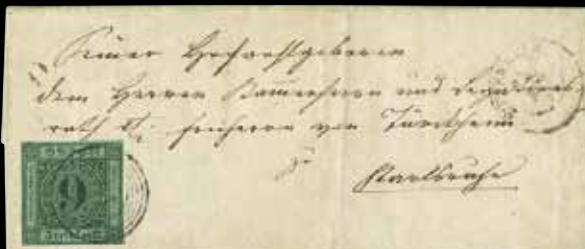 Seiner Hochwohlgeboren
dem Herrn Kammerherrn und Legations-
rath Freiherrn von Türckheim
zu
Karlsruhe
9